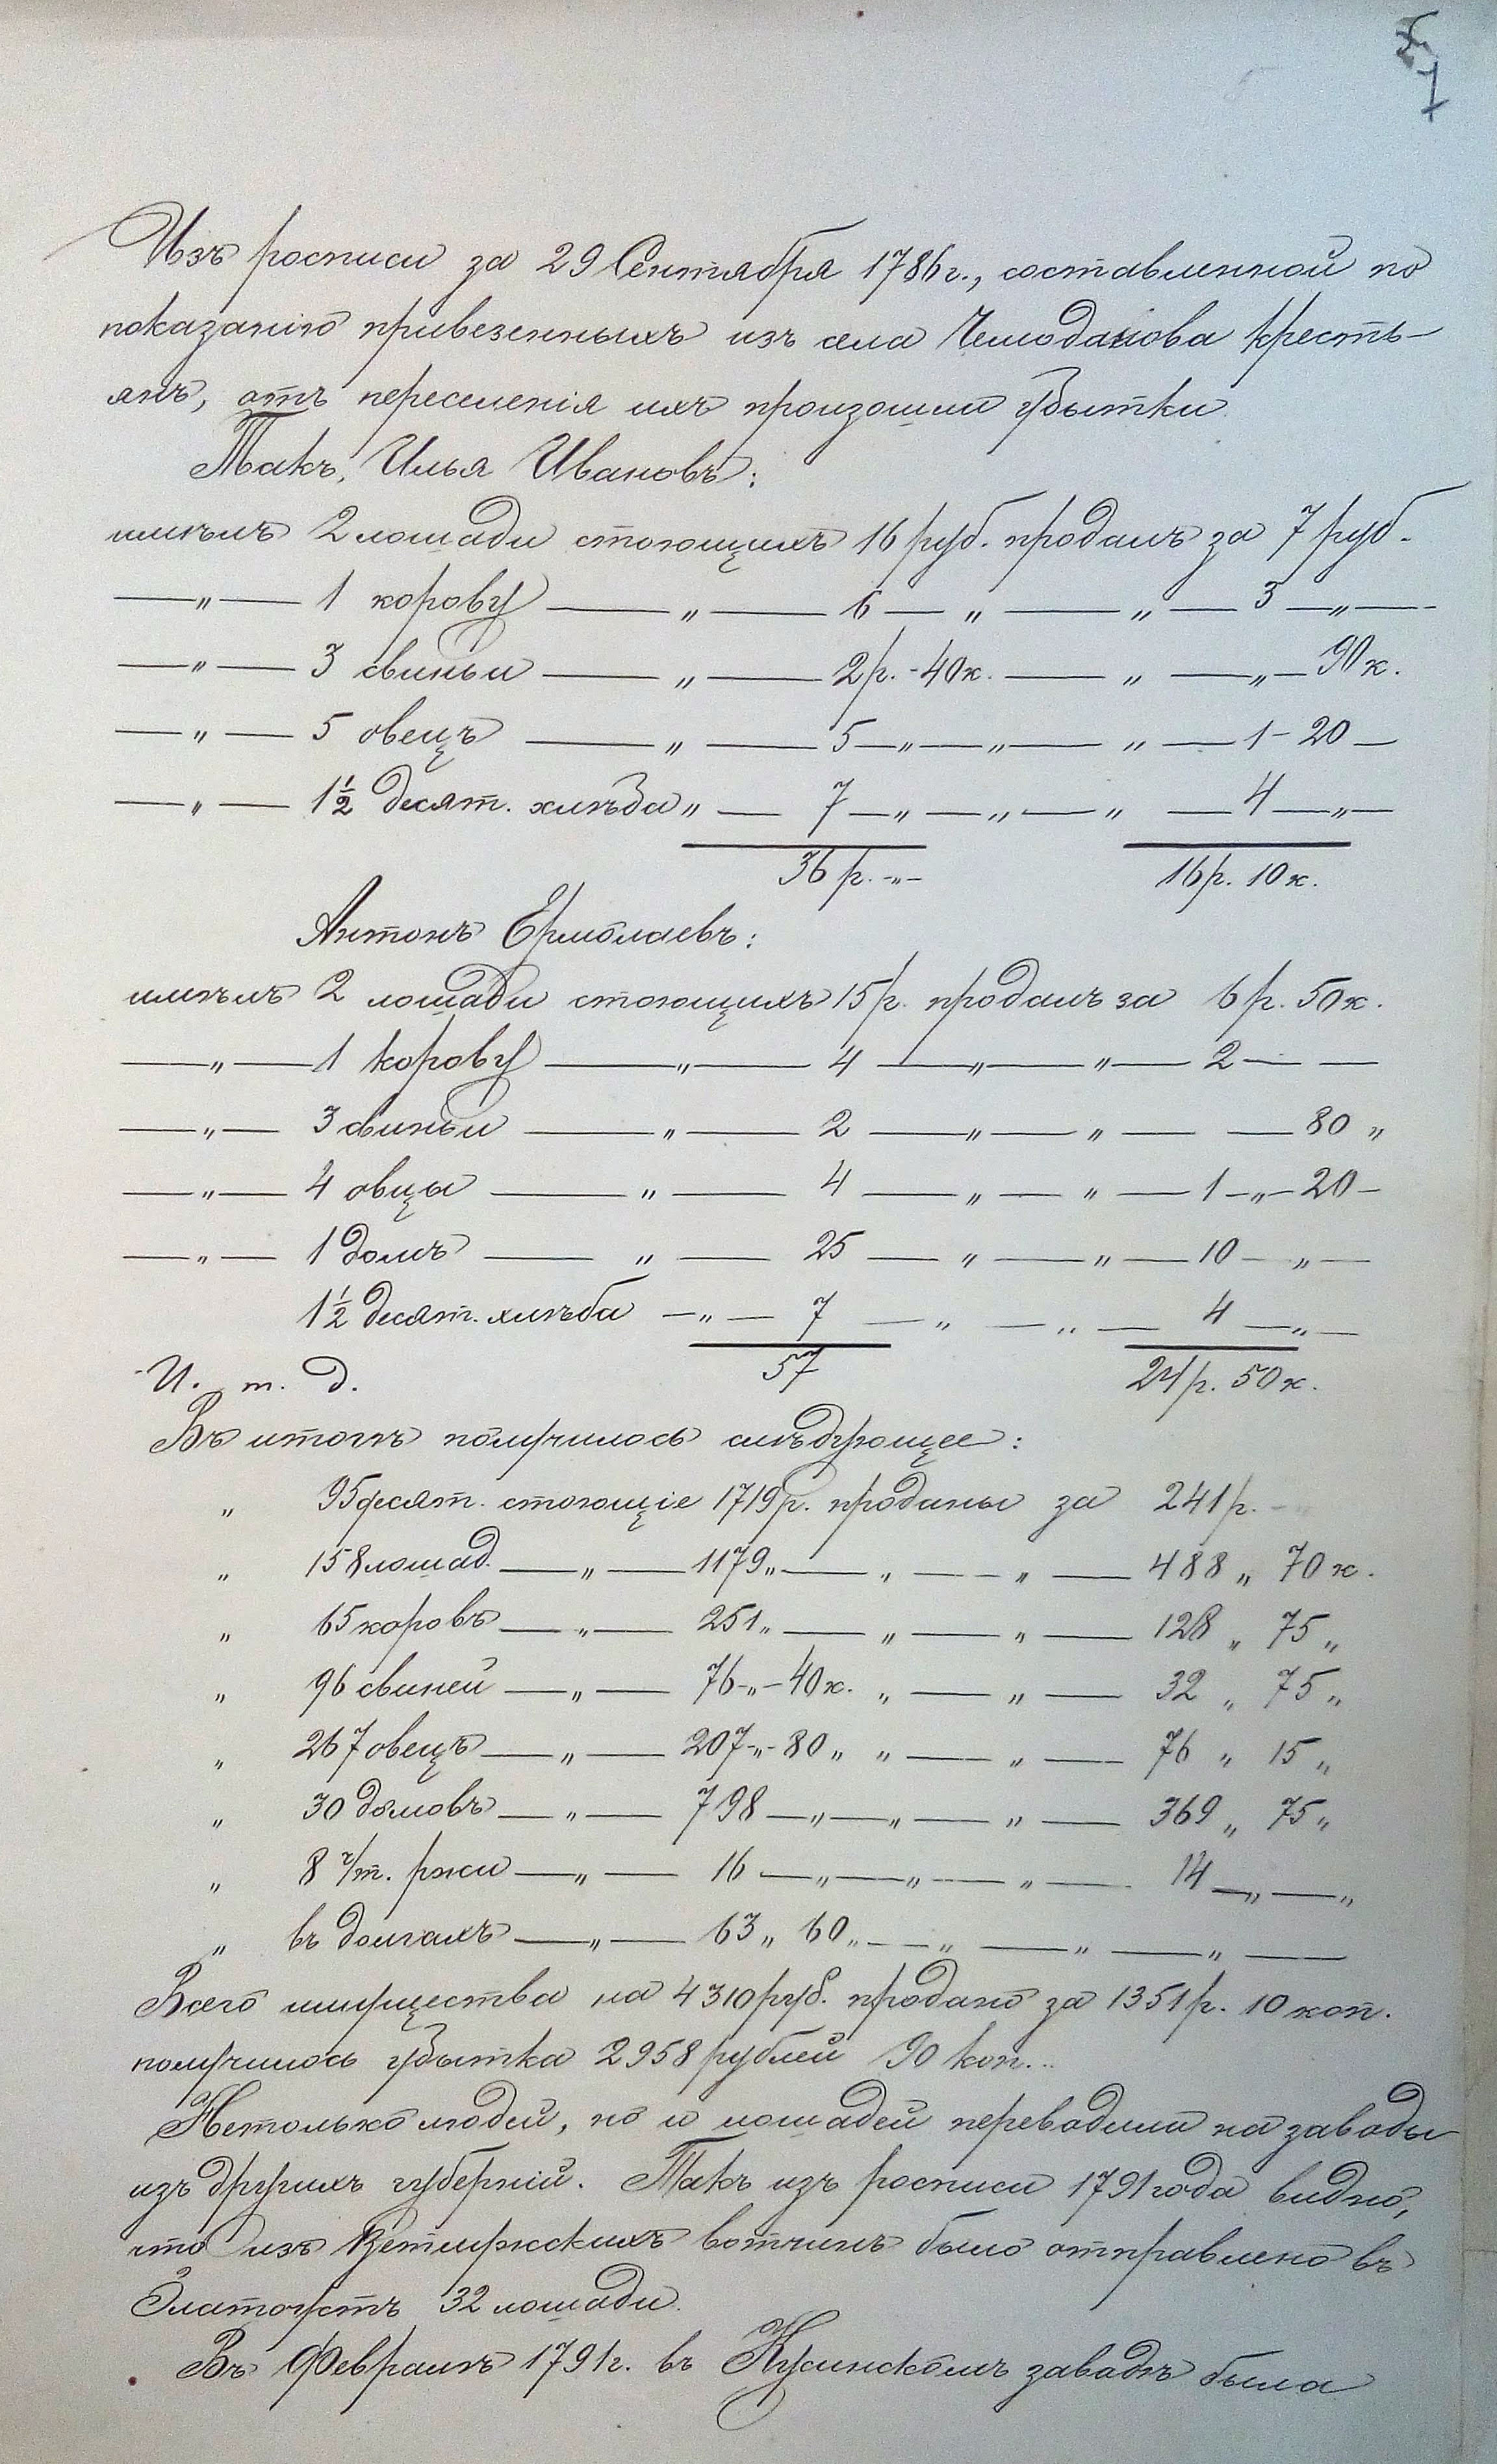 7
Изъ росписи за 29 Сентября 1786 г., составленной по
показанію привезенныхъ изъ села Чемоданова кресть-
янъ, отъ переселенія ихъ произошли убытки.
Такъ, Илья Ивановъ:
имѣлъ 2 лошади стоющихъ 16 руб. продалъ за 7 руб.
—„— 1 корову —„— 6 —„—„— 3 —„—
—„— 3 свиньи —„— 2 р. - 40 к. —„—„— 90 к.
—„— 5 овецъ —„— 5 —„—„—„— 1 - 20 —
—„— 1½ десят. хлѣба „— 7 —„—„—„— 4 —„—
36 р. -„- 16 р. 10 к.
Антонъ Ермолаевъ:
имѣлъ 2 лошади стоющихъ 15 р. продалъ за 6 р. 50 к.
—„— 1 корову —„— 4 —„—„— 2 — —
—„— 3 свиньи —„— 2 —„—„— — 80 „
—„— 4 овцы —„— 4 —„—„— 1 -„- 20 -
—„— 1 домъ —„— 25 —„—„— 10 —„—
1½ десят. хлѣба —„— 7 —„—„— 4 —„—
57 24 р. 50 к.
И. т. д.
Въ итогѣ получилось слѣдующее:
„ 95 десят. стоющіе 1719 р. проданы за 241 р. -„
„ 158 лошад. —„— 1179 „—„—„— 488 „ 70 к.
„ 65 коровъ —„— 251 „—„—„— 128 „ 75 „
„ 96 свиней —„— 76 -„- 40 к. „—„— 32 „ 75 „
„ 267 овецъ —„— 207 -„- 80 „ „—„— 76 „ 15 „
„ 30 домовъ —„— 798 —„—„—„— 369 „ 75 „
„ 8 ч/т. ржи —„— 16 —„—„—„— 14 —„—„
„ въ долгахъ —„— 63 „ 60 „—„—„—„—
Всего имущества на 4310 руб. продано за 1351 р. 10 коп.
получилось убытка 2958 рублей 90 коп...
Нетолько людей, но и лошадей переводили на заводы
изъ другихъ губерній. Такъ изъ росписи 1791 года видно,
что изъ Ветлужскихъ вотчинъ было отправлено въ
Златоустъ 32 лошади.
Въ Февралѣ 1791 г. въ Кусинскомъ заводѣ была